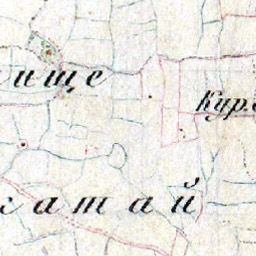 ище
Кур
катай